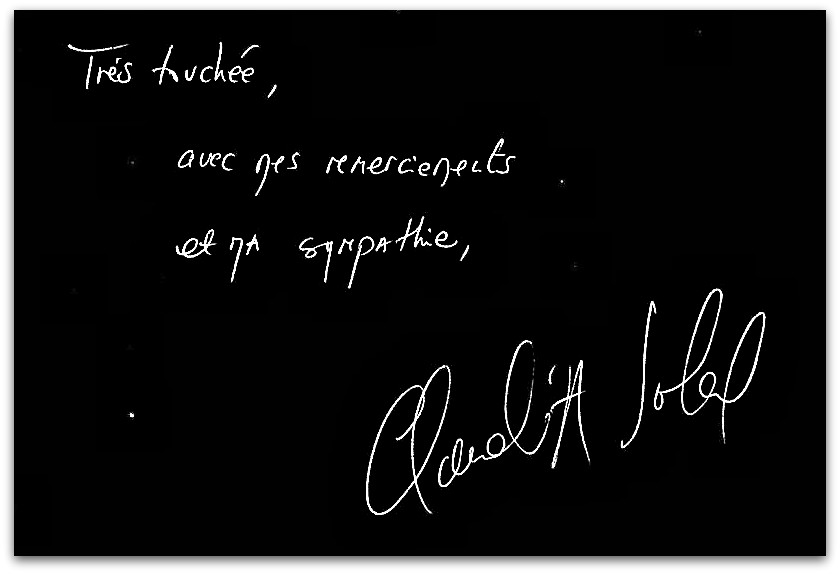 Très touchée,
avec mes remerciements
et ma sympathie,
Claudia